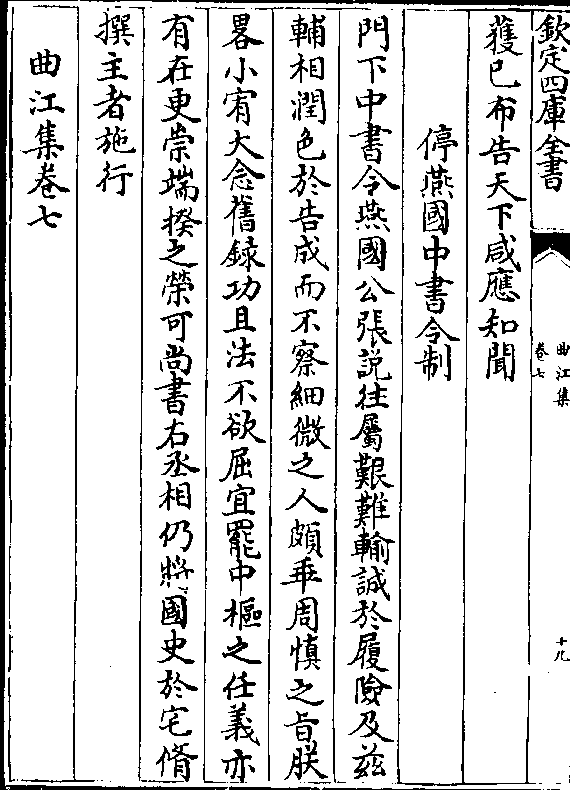 欽定四庫全書
曲江集
卷七
十九
獲已布告天下咸應知聞
停燕國中書令制
門下中書令燕國公張説往屬艱難輸誠於履險及兹
輔相潤色於告成而不察細微之人頗乖周慎之旨朕
畧小宥大念舊録功且法不欲屈宜罷中樞之任義亦
有在更崇端揆之榮可尚書右丞相仍將國史於宅脩
撰主者施行
曲江集卷七